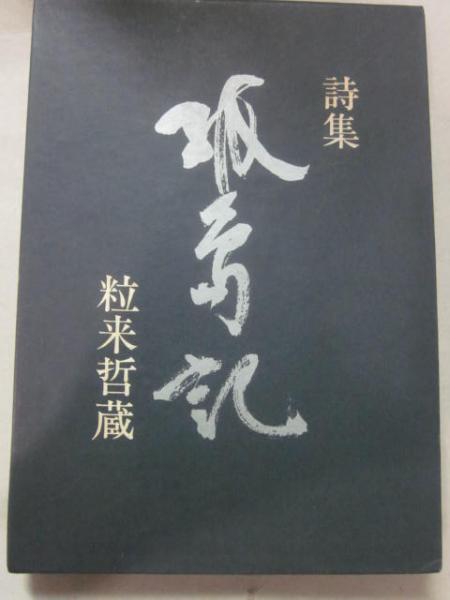 詩集
孤島記
粒来哲蔵